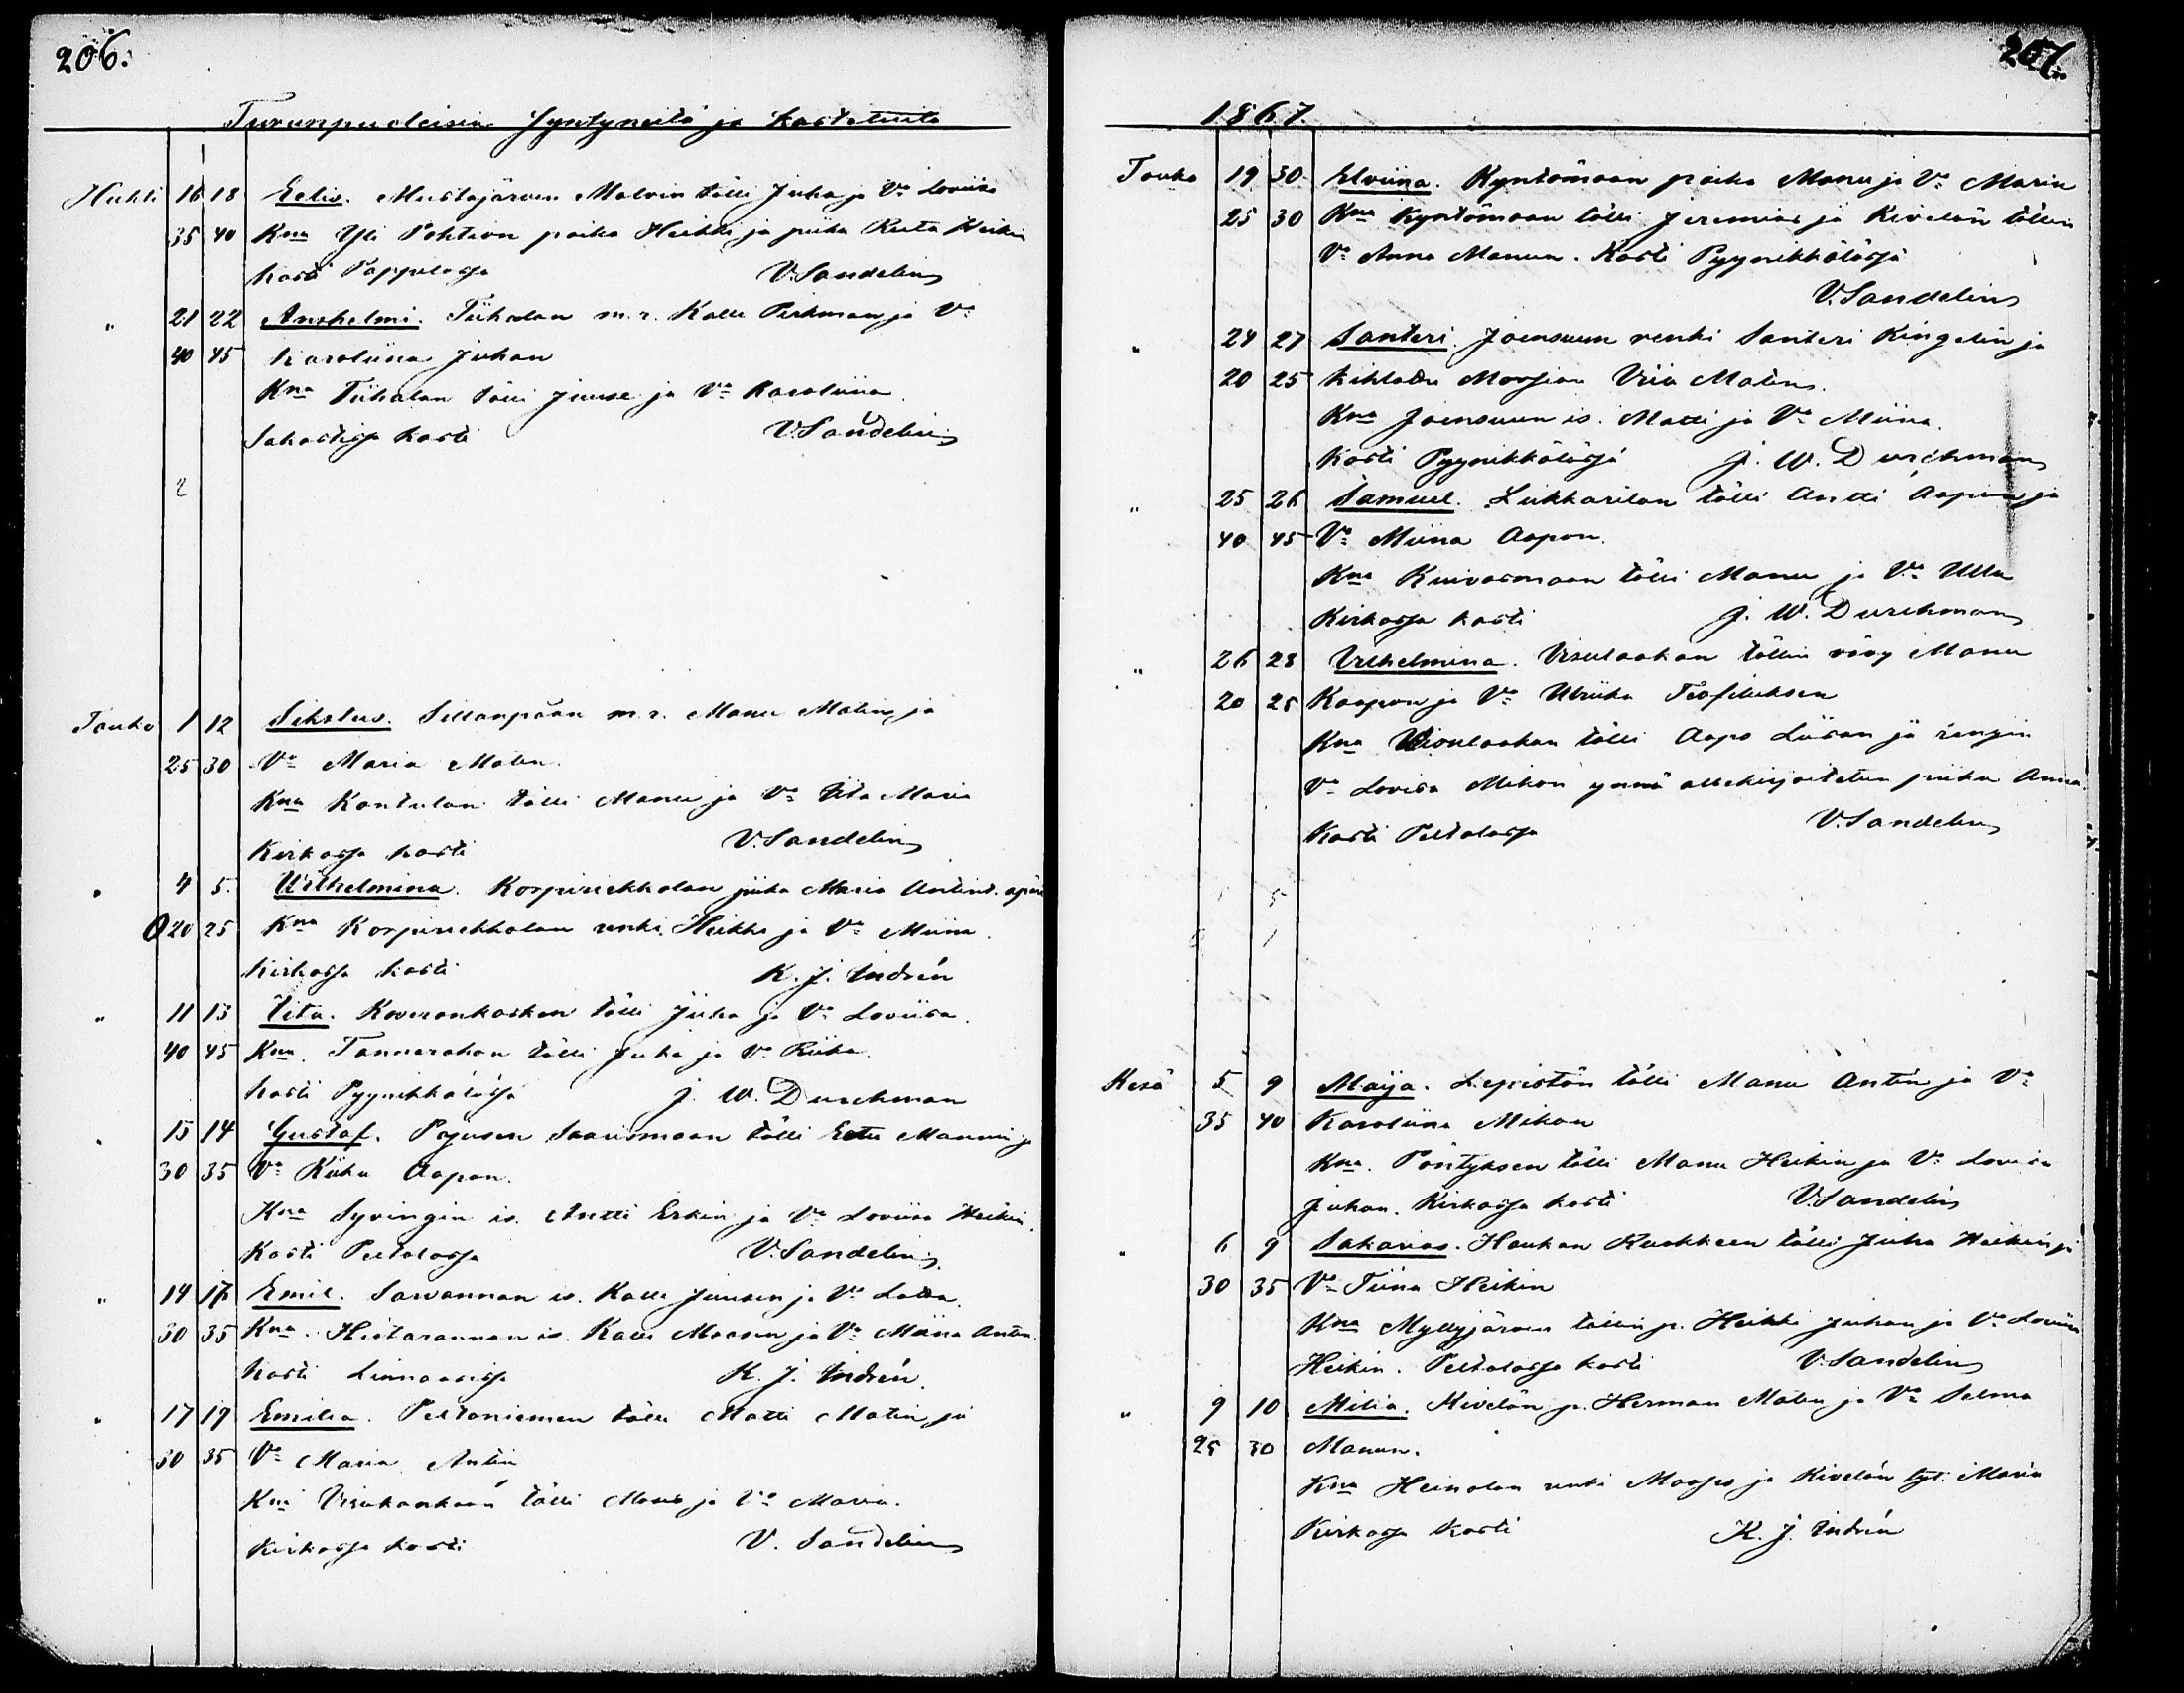 206.
Turunpuoleisia Syntyneitä ja Kastetuita
Huhti 16 18 Eelis. Mustajärven Malvin tölli Juha ja Vo Loviisa
35 40 Kna Yli Pohtion poika Heikki ja piika Reeta Heikin
kasti Pappilassa V. Sandelin
" 21 22 Anshelmi. Tiihalan m.r. Kalle Perkman ja Vo
40 45 Karoliina Juhan
Kna Tiihalan tölli Juuse ja Vo Karoliina.
Sahastissa kasti V. Sandelin
2
Touko 1 12 Sikstus. Sillanpään m.r. Manu Matin ja
25 30 Vo Maria Matin.
Kna Kontulan tölli Manu ja Vo Iita Maria
Kirkossa kasti V. Sandelin
" 4 5. Vilhelmina. Korpiriekkolan piika Maria Antint.
O 20 25 Kna Korpiriekkolan renki Heikki ja Vo Miina.
Kirkossa kasti K. J. Indrén
" 11 13 Iita. Koveronkosken tölli Juha ja Vo Loviisa.
40 45 Kna. Tannerahon tölli Juha ja Vo Riika.
kasti Pyynikkölässä J. W. Durchman
" 15 14 Gustaf. Pajusen Saarismaan tölli Eetu Manuin ja
30 35 Vo Riika Aapon.
Kna Syvingin is. Antti Erkin ja Vo Loviisa Heikin.
Kasti Peltolassa V. Sandelin
" 14 17 Emil. Sarvannan is. Kalle Juusen ja Vo
30 35 Kna. Hietarannan is. Kalle Maasen ja Vo Miina Antin.
kasti Linnaasissa K. J. Indrén.
" 17 19 Emilia. Peltoniemen tölli Matti Matin ja
30 35 Vo Maria Antin
Kna Visukankaan tölli ja Vo Maria.
Kirkossa kasti V. Sandelin
207.
1867.
Touko 19 30 Elviina. Kyntömaan poika Manu ja Vo Maria
25 30 Kna Kyntömaan tölli Jeremias ja Kivelän töllin
Vo Anna Manun. Kasti Pyynikkölässä
V. Sandelin
" 24 27 Santeri. Joensuun renki Santeri Ringelin ja
20 25 kihlattu Morsian Viia Matin.
Kna Joensuun is. Matti ja Vo Miina.
Kasti Pyynikkölässä J. W. Durchman
" 25 26 Samuel. Lukkarilan tölli Antti Aapon ja
40 45 Vo Miina Aapon.
Kna Kuivasmaan tölli Manu ja Vo Ulla
Kirkossa kasti J. W. Durchman
" 26 28 Vilhelmina. Visulaakan töllin vävy Manu
20 25 Kaapon ja Vo Ulriika Teofiluksen
Kna Visulaakan tölli Aapo Liisan ja rengin
Vo Lovisa Mikon ynnä allekirjoitetun piika Anna.
Kasti Peltolassa V. Sandelin
5
Kesä 5 9 Maija. Lepistön tölli Manu Antin ja Vo
35 40 Karoliina Mikon
Kna. Pöntyksen tölli Manu Heikin ja Vo Lovisa
Juhan. Kirkossa kasti V. Sandelin
" 6 9 Sakarias. Haukan Ruokkeen tölli Juha Heikin ja
30 35 Vo Tiina Heikin
Kna Myllyjärven töllin p. Heikki Juhan ja Vo Loviisa
Heikin. Peltolassa kasti V. Sandelin
" 9 10 Milia. Kivelän p. Herman Matin ja Vo Selma
25 30 Manun.
Kna Heinolan renki Mooses ja Kivelän tyt. Maria
Kirkossa kasti K. J. Indrén